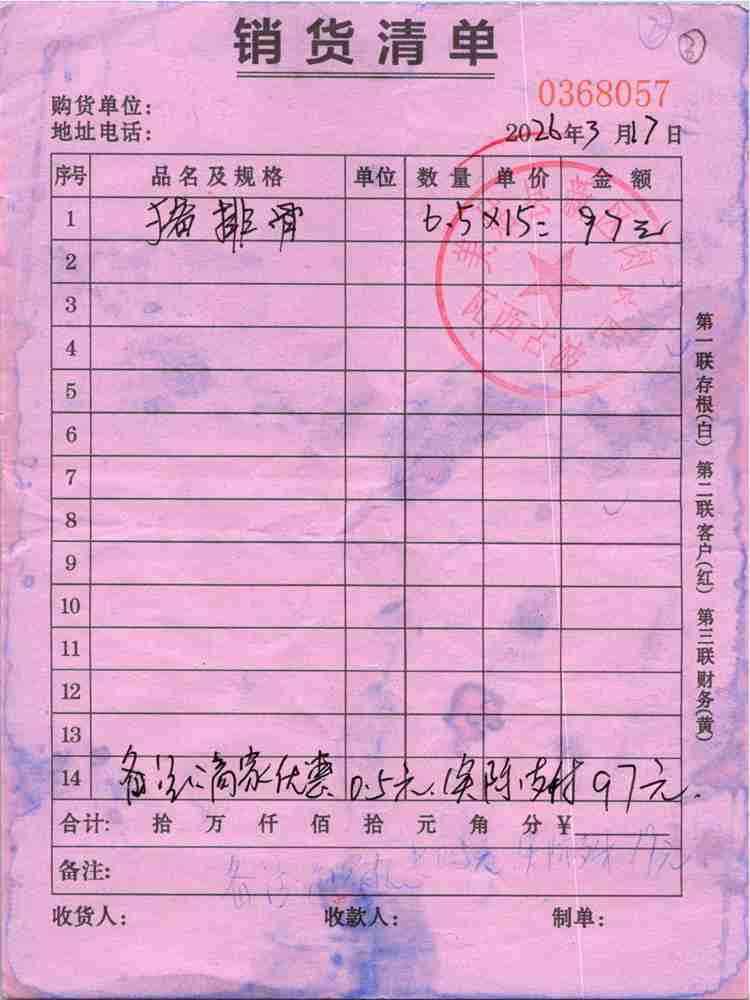 销货清单
0368057
购货单位:
地址电话:
2026年3月17日
序号 品名及规格 单位 数量 单价 金额
1 猪排骨 6.5×15= 97元
2
3
4
5
6
7
8
9
10
11
12
13
14 备注:商家优惠0.5元.实际支付97元.
合计: 拾 万 仟 佰 拾 元 角 分 ¥
备注:
收货人: 收款人: 制单:
第一联存根(白) 第二联客户(红) 第三联财务(黄)